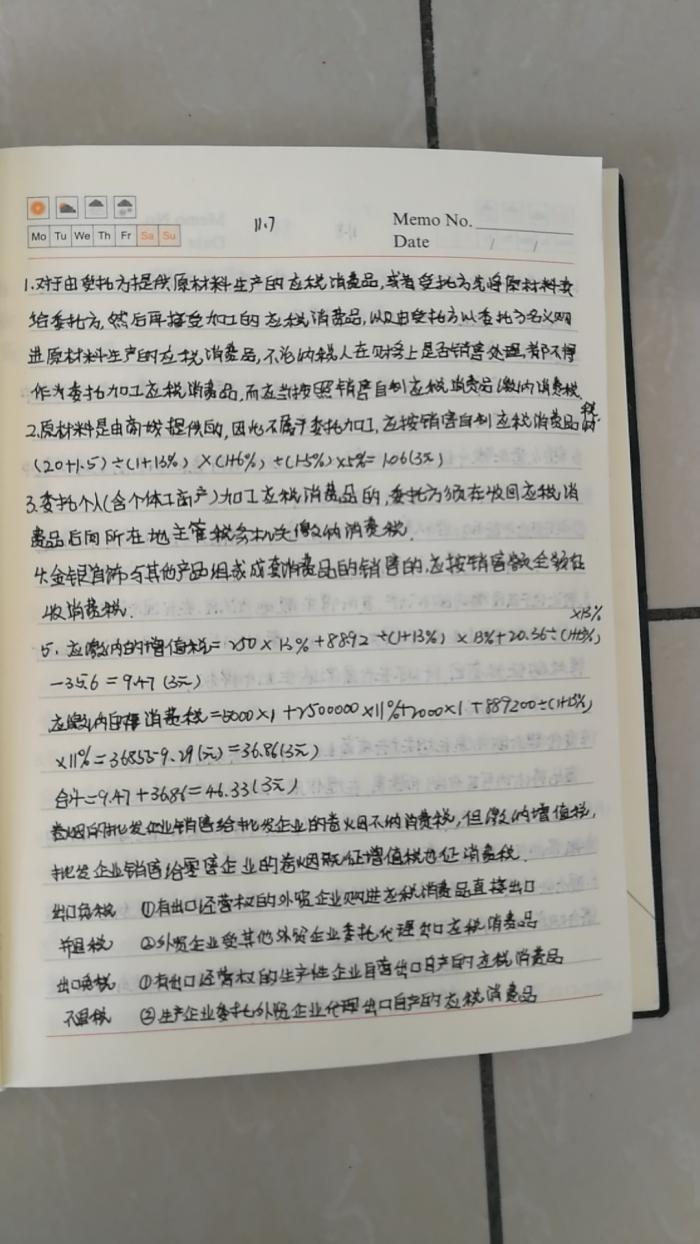 11.7
Memo No.
Mo Tu We Th Fr Sa Su
Date / /
1.对于由受托方提供原材料生产的应税消费品,或者受托方先将原材料卖
给委托方,然后再接受加工的应税消费品,以及由受托方以委托方名义购
进原材料生产的应税消费品,不论纳税人在财务上是否销售处理,都不得
作为委托加工应税消费品,而应当按照销售自制应税消费品缴纳消费税.
2.原材料是由商城提供的,因此不属于委托加工,应按销售自制应税消费品 税
(20+1.5)÷(1+13%)×(1+6%)÷(1-5%)×5%=1.06(万元)
3.委托个人(含个体工商户)加工应税消费品的,委托方须在收回应税消
费品后向所在地主管税务机关缴纳消费税.
4.金银首饰与其他产品组成成套消费品的销售的,应按销售额全额征
收消费税.
5.应缴纳的增值税=250×13%+8892÷(1+13%)×13%+20.36÷(1+13%) ×13%
-35.6=9.47(万元)
应缴纳 消费税=5000×1+2500000×11%+2000×1+889200÷(1+13%)
×11%=368559.29(元)=36.86(万元)
合计=9.47+36.86=46.33(万元)
卷烟的批发企业销售给批发企业的卷烟不纳消费税,但缴纳增值税,
批发企业销售给零售企业的卷烟既征增值税也征消费税.
出口免税 ①有出口经营权的外贸企业购进应税消费品直接出口
并退税 ②外贸企业受其他外贸企业委托代理出口应税消费品
出口免税 ①有出口经营权的生产性企业自营出口自产的应税消费品
不退税 ②生产企业委托外贸企业代理出口自产的应税消费品